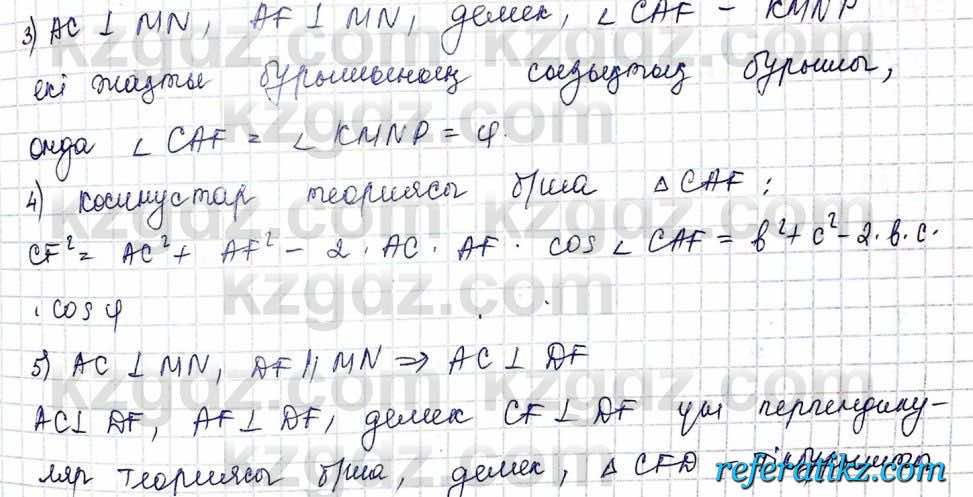 3) AC ⊥ MN, AF ⊥ MN, демек, ∠ CAF - KMNP
екі жақты бұрышының сызықтық бұрышы,
онда ∠ CAF = ∠ KMNP = φ.
4) косинустар теориясы б/ша △ CAF:
CF² = AC² + AF² - 2 · AC · AF · cos ∠ CAF = b² + c² - 2·b·c·
· cos φ
5) AC ⊥ MN, DF || MN ⇒ AC ⊥ DF
AC ⊥ DF, AF ⊥ DF, демек CF ⊥ DF үш перпендику-
ляр теориясы б/ша, демек, △ CFD -
kzgdz.com
referatikz.com